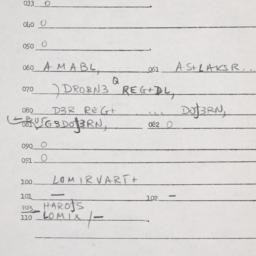 033 0
040 0
050 0
060 AMABL, 061 ASTLAKSR...
070 )DROBN3 Q REG+DL,
080 D3R REG+ ... DOJ3RN,
081 G3DOJ3RN, 082 0
090 0
091 0
100 LOMIRVART+
101 — 102 —
103 HAROJS
110 LOMIX/—